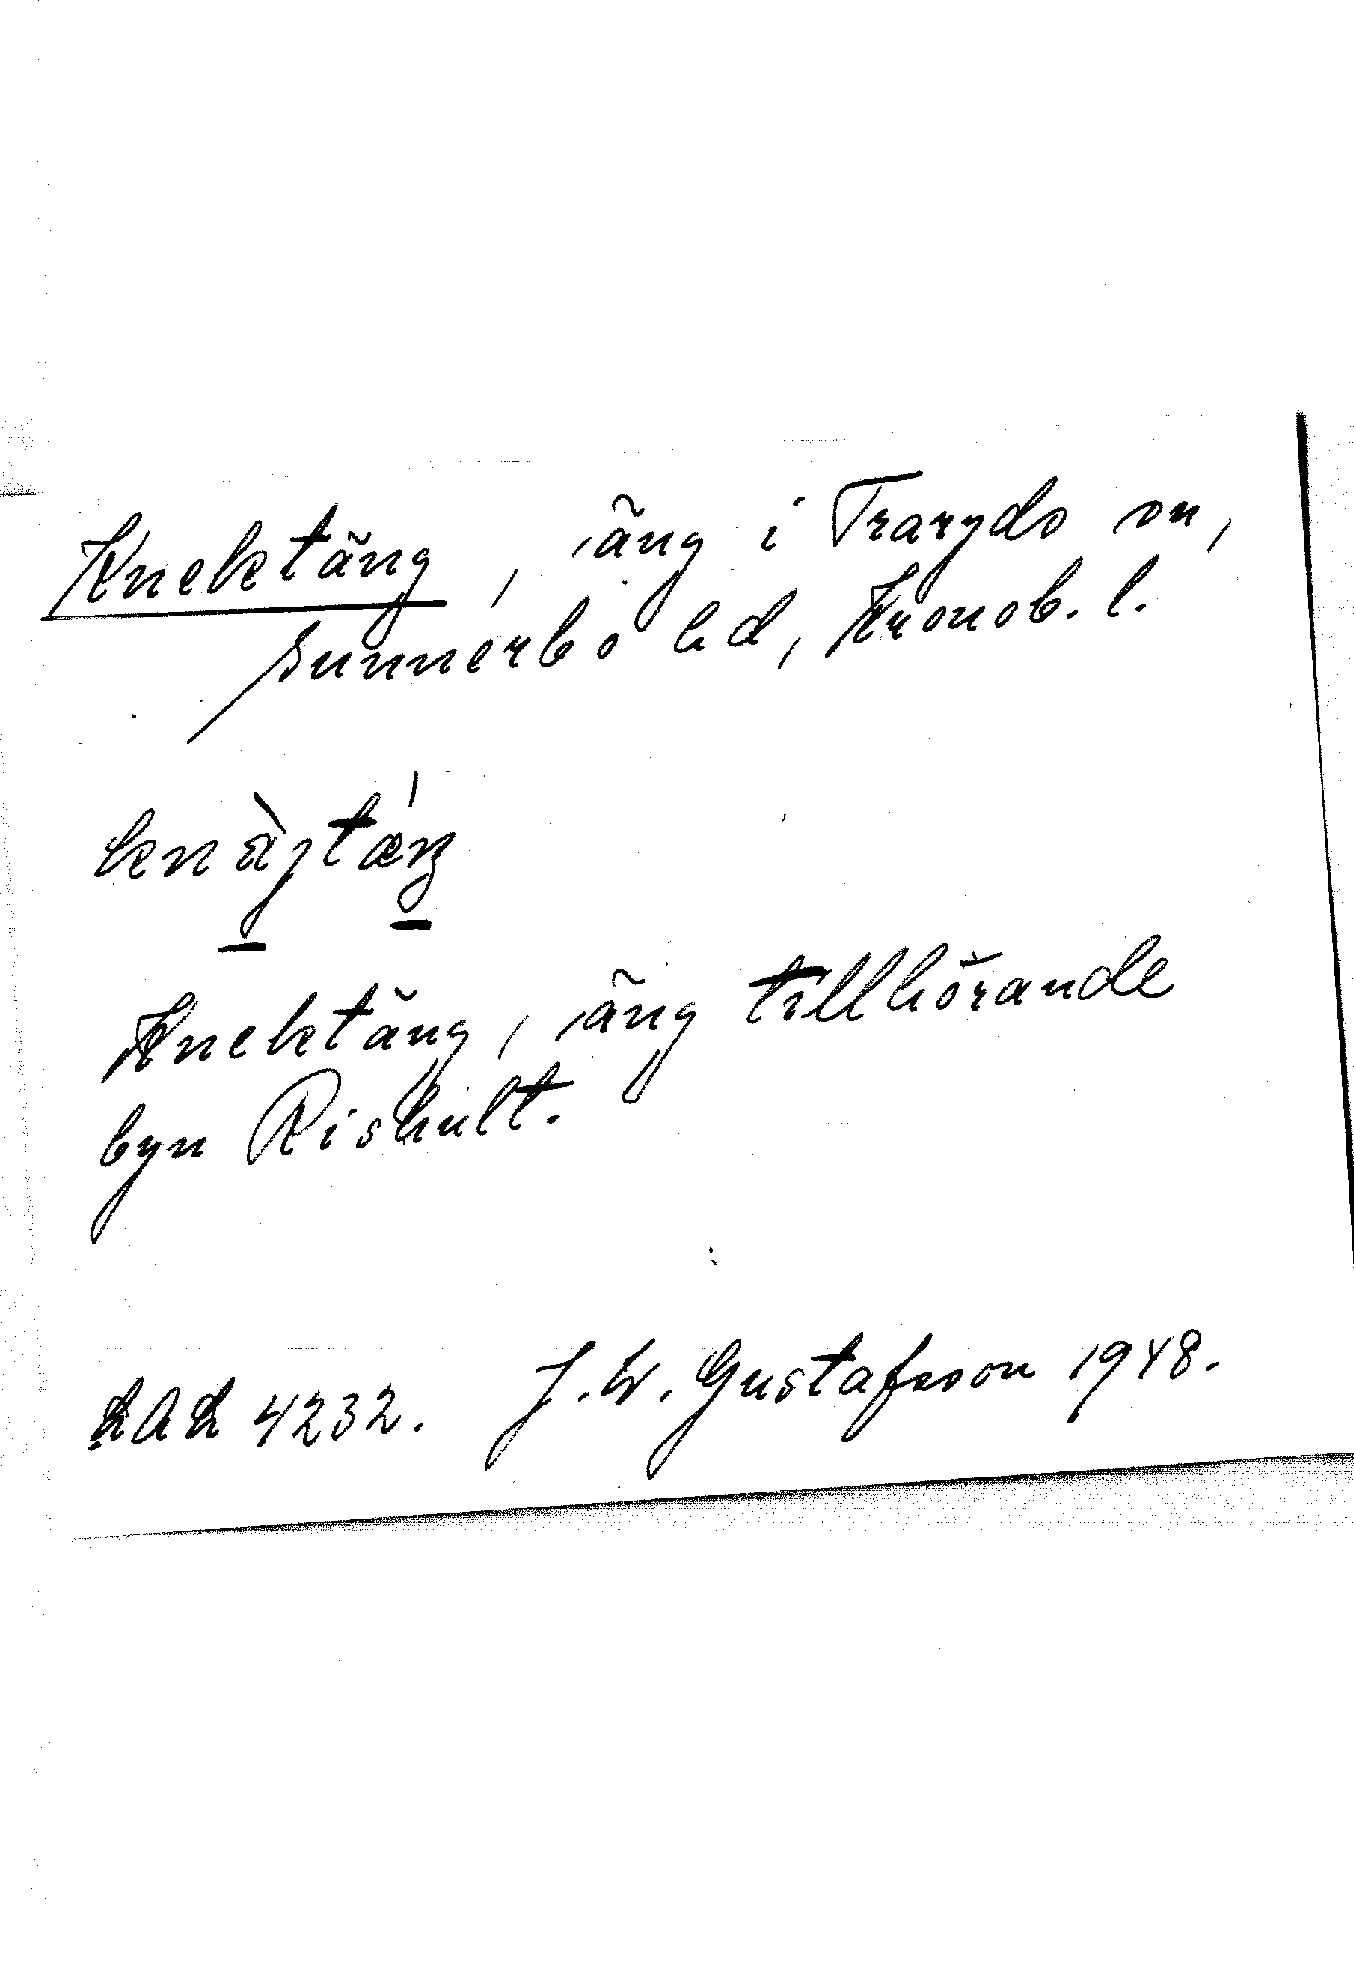 Knektäng, äng i Traryds sn,
Sunnerbo hd, Kronob. l.
Knektäng, äng tillhörande
byn Rishult.
LAL 4232. J. W. Gustafsson 1948.